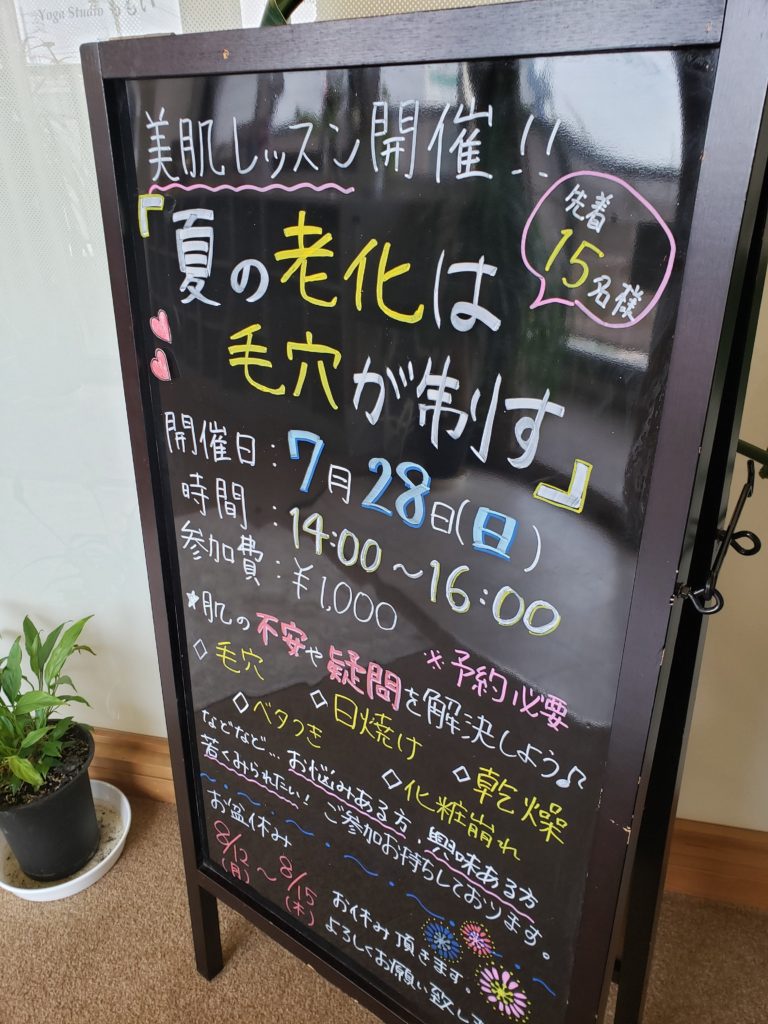 Yoga Studio
美肌レッスン開催!!
先着
15名様
『夏の老化は
毛穴が制す』
開催日:7月28日(日)
時間:14:00~16:00
参加費:¥1,000
※予約必要
★肌の不安や疑問を解決しよう♪
◇毛穴 ◇日焼け ◇乾燥
◇ベタつき ◇化粧崩れ
などなど…お悩みある方、興味ある方
若くみられたい! ご参加お待ちしております。
お盆休み
8/12(月)~8/15(木)
お休み頂きます。
よろしくお願い致しま